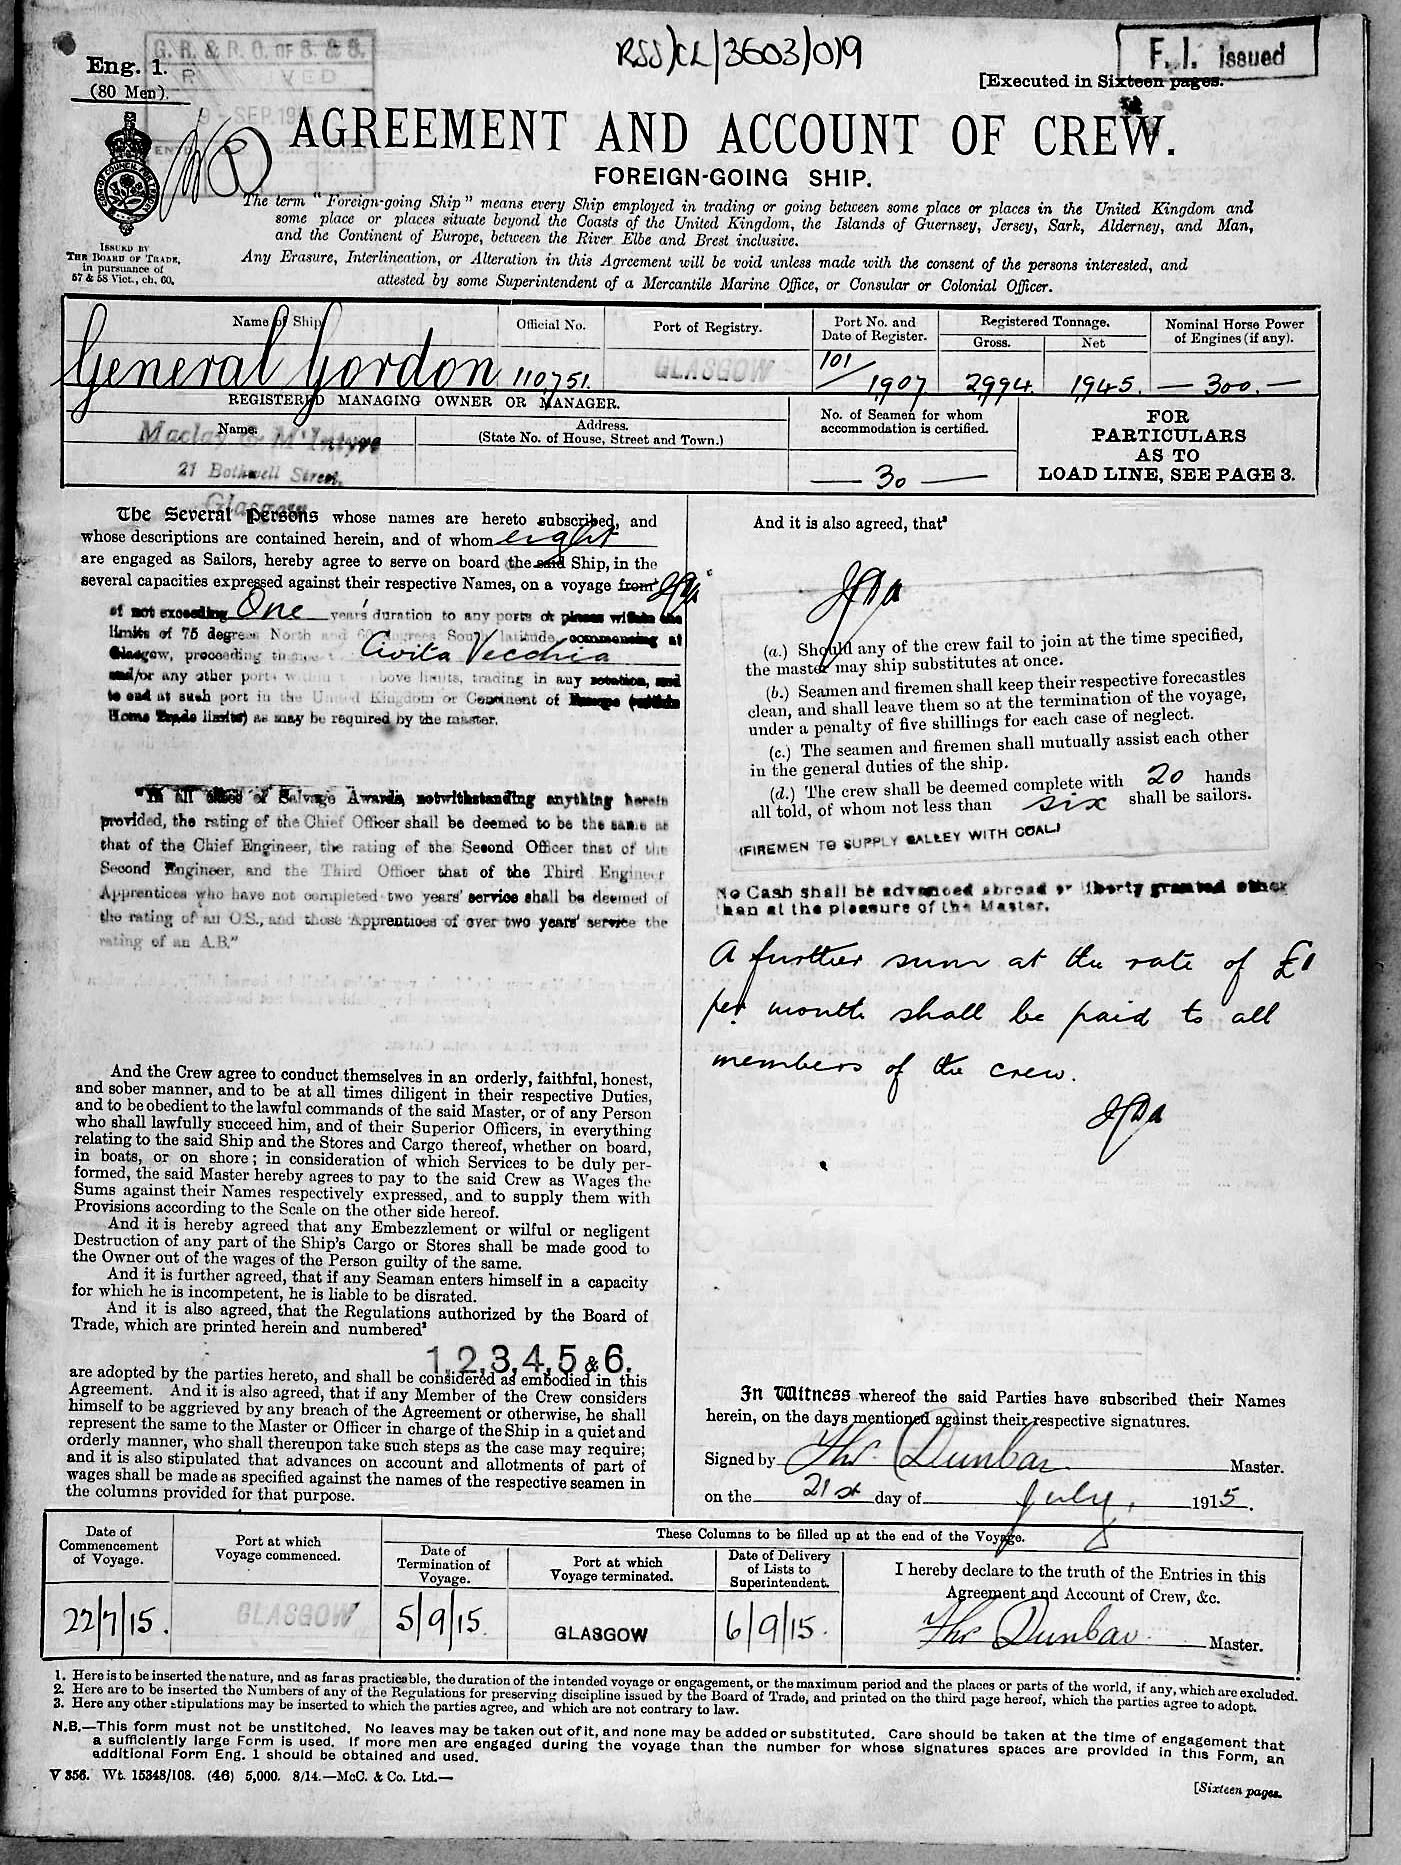 G. R. & R. O. OF S. & S.
9 - SEP. 1915
RSS/CL/3603/019
F. I. Issued
Eng. 1.
(80 Men).
[Executed in Sixteen pages.
AGREEMENT AND ACCOUNT OF CREW.
FOREIGN-GOING SHIP.
ISSUED BY
THE BOARD OF TRADE,
in pursuance of
57 & 58 Vict., ch. 60.
The term "Foreign-going Ship" means every Ship employed in trading or going between some place or places in the United Kingdom and
some place or places situate beyond the Coasts of the United Kingdom, the Islands of Guernsey, Jersey, Sark, Alderney, and Man,
and the Continent of Europe, between the River Elbe and Brest inclusive.
Any Erasure, Interlineation, or Alteration in this Agreement will be void unless made with the consent of the persons interested, and
attested by some Superintendent of a Mercantile Marine Office, or Consular or Colonial Officer.
Name of Ship
Official No.
Port of Registry.
Port No. and
Date of Register.
Registered Tonnage.
Gross.
Net
Nominal Horse Power
of Engines (if any).
General Gordon
110751.
GLASGOW
101/1907
2994.
1945.
— 300. —
REGISTERED MANAGING OWNER OR MANAGER.
Name.
Address.
(State No. of House, Street and Town.)
No. of Seamen for whom
accommodation is certified.
FOR
PARTICULARS
AS TO
LOAD LINE, SEE PAGE 3.
Maclay & McIntyre
21 Bothwell Street,
Glasgow
— 30 —
The Several Persons whose names are hereto subscribed, and
whose descriptions are contained herein, and of whom eight
are engaged as Sailors, hereby agree to serve on board the said Ship, in the
several capacities expressed against their respective Names, on a voyage from¹
of not exceeding One years' duration to any ports or places within the
limits of 75 degrees North and 60 degrees South latitude, commencing at
Glasgow, proceeding thence Civita Vecchia
and/or any other ports within the above limits, trading in any rotation, and
to end at such port in the United Kingdom or Continent of Europe (within
Home Trade limits) as may be required by the master.
"In all cases of Salvage Awards, notwithstanding anything herein
provided, the rating of the Chief Officer shall be deemed to be the same as
that of the Chief Engineer, the rating of the Second Officer that of the
Second Engineer, and the Third Officer that of the Third Engineer
Apprentices who have not completed two years' service shall be deemed of
the rating of an O.S., and those Apprentices of over two years' service the
rating of an A.B."
And the Crew agree to conduct themselves in an orderly, faithful, honest,
and sober manner, and to be at all times diligent in their respective Duties,
and to be obedient to the lawful commands of the said Master, or of any Person
who shall lawfully succeed him, and of their Superior Officers, in everything
relating to the said Ship and the Stores and Cargo thereof, whether on board,
in boats, or on shore; in consideration of which Services to be duly per-
formed, the said Master hereby agrees to pay to the said Crew as Wages the
Sums against their Names respectively expressed, and to supply them with
Provisions according to the Scale on the other side hereof.
And it is hereby agreed that any Embezzlement or wilful or negligent
Destruction of any part of the Ship's Cargo or Stores shall be made good to
the Owner out of the wages of the Person guilty of the same.
And it is further agreed, that if any Seaman enters himself in a capacity
for which he is incompetent, he is liable to be disrated.
And it is also agreed, that the Regulations authorized by the Board of
Trade, which are printed herein and numbered²
1, 2, 3, 4, 5 & 6.
are adopted by the parties hereto, and shall be considered as embodied in this
Agreement. And it is also agreed, that if any Member of the Crew considers
himself to be aggrieved by any breach of the Agreement or otherwise, he shall
represent the same to the Master or Officer in charge of the Ship in a quiet and
orderly manner, who shall thereupon take such steps as the case may require;
and it is also stipulated that advances on account and allotments of part of
wages shall be made as specified against the names of the respective seamen in
the columns provided for that purpose.
And it is also agreed, that³
(a.) Should any of the crew fail to join at the time specified,
the master may ship substitutes at once.
(b.) Seamen and firemen shall keep their respective forecastles
clean, and shall leave them so at the termination of the voyage,
under a penalty of five shillings for each case of neglect.
(c.) The seamen and firemen shall mutually assist each other
in the general duties of the ship.
(d.) The crew shall be deemed complete with 20 hands
all told, of whom not less than six shall be sailors.
(FIREMEN TO SUPPLY GALLEY WITH COAL)
No Cash shall be advanced abroad or liberty granted other
than at the pleasure of the Master.
A further sum at the rate of £1
per month shall be paid to all
members of the crew.
In Witness whereof the said Parties have subscribed their Names
herein, on the days mentioned against their respective signatures.
Signed by Thos. Dunbar Master.
on the 21st day of July, 1915.
Date of
Commencement
of Voyage.
Port at which
Voyage commenced.
These Columns to be filled up at the end of the Voyage.
Date of
Termination of
Voyage.
Port at which
Voyage terminated.
Date of Delivery
of Lists to
Superintendent.
I hereby declare to the truth of the Entries in this
Agreement and Account of Crew, &c.
22/7/15.
GLASGOW
5/9/15.
GLASGOW
6/9/15.
Thos Dunbar Master.
1. Here is to be inserted the nature, and as far as practicable, the duration of the intended voyage or engagement, or the maximum period and the places or parts of the world, if any, which are excluded.
2. Here are to be inserted the Numbers of any of the Regulations for preserving discipline issued by the Board of Trade, and printed on the third page hereof, which the parties agree to adopt.
3. Here any other stipulations may be inserted to which the parties agree, and which are not contrary to law.
N.B.—This form must not be unstitched. No leaves may be taken out of it, and none may be added or substituted. Care should be taken at the time of engagement that
a sufficiently large Form is used. If more men are engaged during the voyage than the number for whose signatures spaces are provided in this Form, an
additional Form Eng. 1 should be obtained and used.
V 356. Wt. 15348/108. (46) 5,000. 8/14.—McC. & Co. Ltd.—
[Sixteen pages.